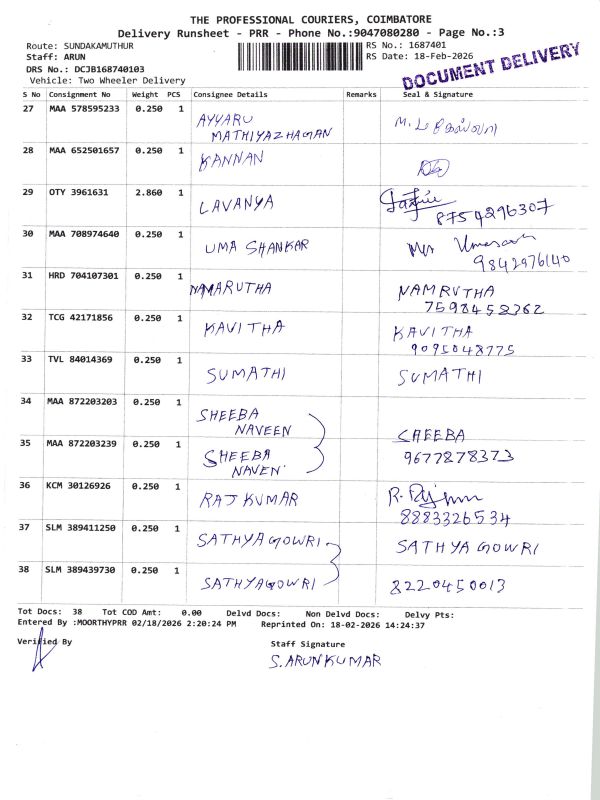 THE PROFESSIONAL COURIERS, COIMBATORE
Delivery Runsheet - PRR - Phone No.:9047080280 - Page No.:3
Route: SUNDAKAMUTHUR RS No.: 1687401
Staff: ARUN RS Date: 18-Feb-2026
DRS No.: DCJB168740103
Vehicle: Two Wheeler Delivery
DOCUMENT DELIVERY
S No Consignment No Weight PCS Consignee Details Remarks Seal & Signature
27 MAA 578595233 0.250 1 AYYARU
MATHIYAZHAGAN
28 MAA 652501657 0.250 1 KANNAN
29 OTY 3961631 2.860 1 LAVANYA
8754296307
30 MAA 708974640 0.250 1 UMA SHANKAR
9842976140
31 HRD 704107301 0.250 1 NAMARUTHA NAMRUTHA
7598452362
32 TCG 42171856 0.250 1 KAVITHA KAVITHA
9095048775
33 TVL 84014369 0.250 1 SUMATHI SUMATHI
34 MAA 872203203 0.250 1 SHEEBA
NAVEEN
SHEEBA
35 MAA 872203239 0.250 1 SHEEBA 9677878373
NAVEN
36 KCM 30126926 0.250 1 RAJ KUMAR
8883326534
37 SLM 389411250 0.250 1 SATHYAGOWRI SATHYAGOWRI
38 SLM 389439730 0.250 1 SATHYAGOWRI 8220450013
Tot Docs: 38 Tot COD Amt: 0.00 Delvd Docs: Non Delvd Docs: Delvy Pts:
Entered By :MOORTHYPRR 02/18/2026 2:20:24 PM Reprinted On: 18-02-2026 14:24:37
Verified By Staff Signature
S.ARUNKUMAR